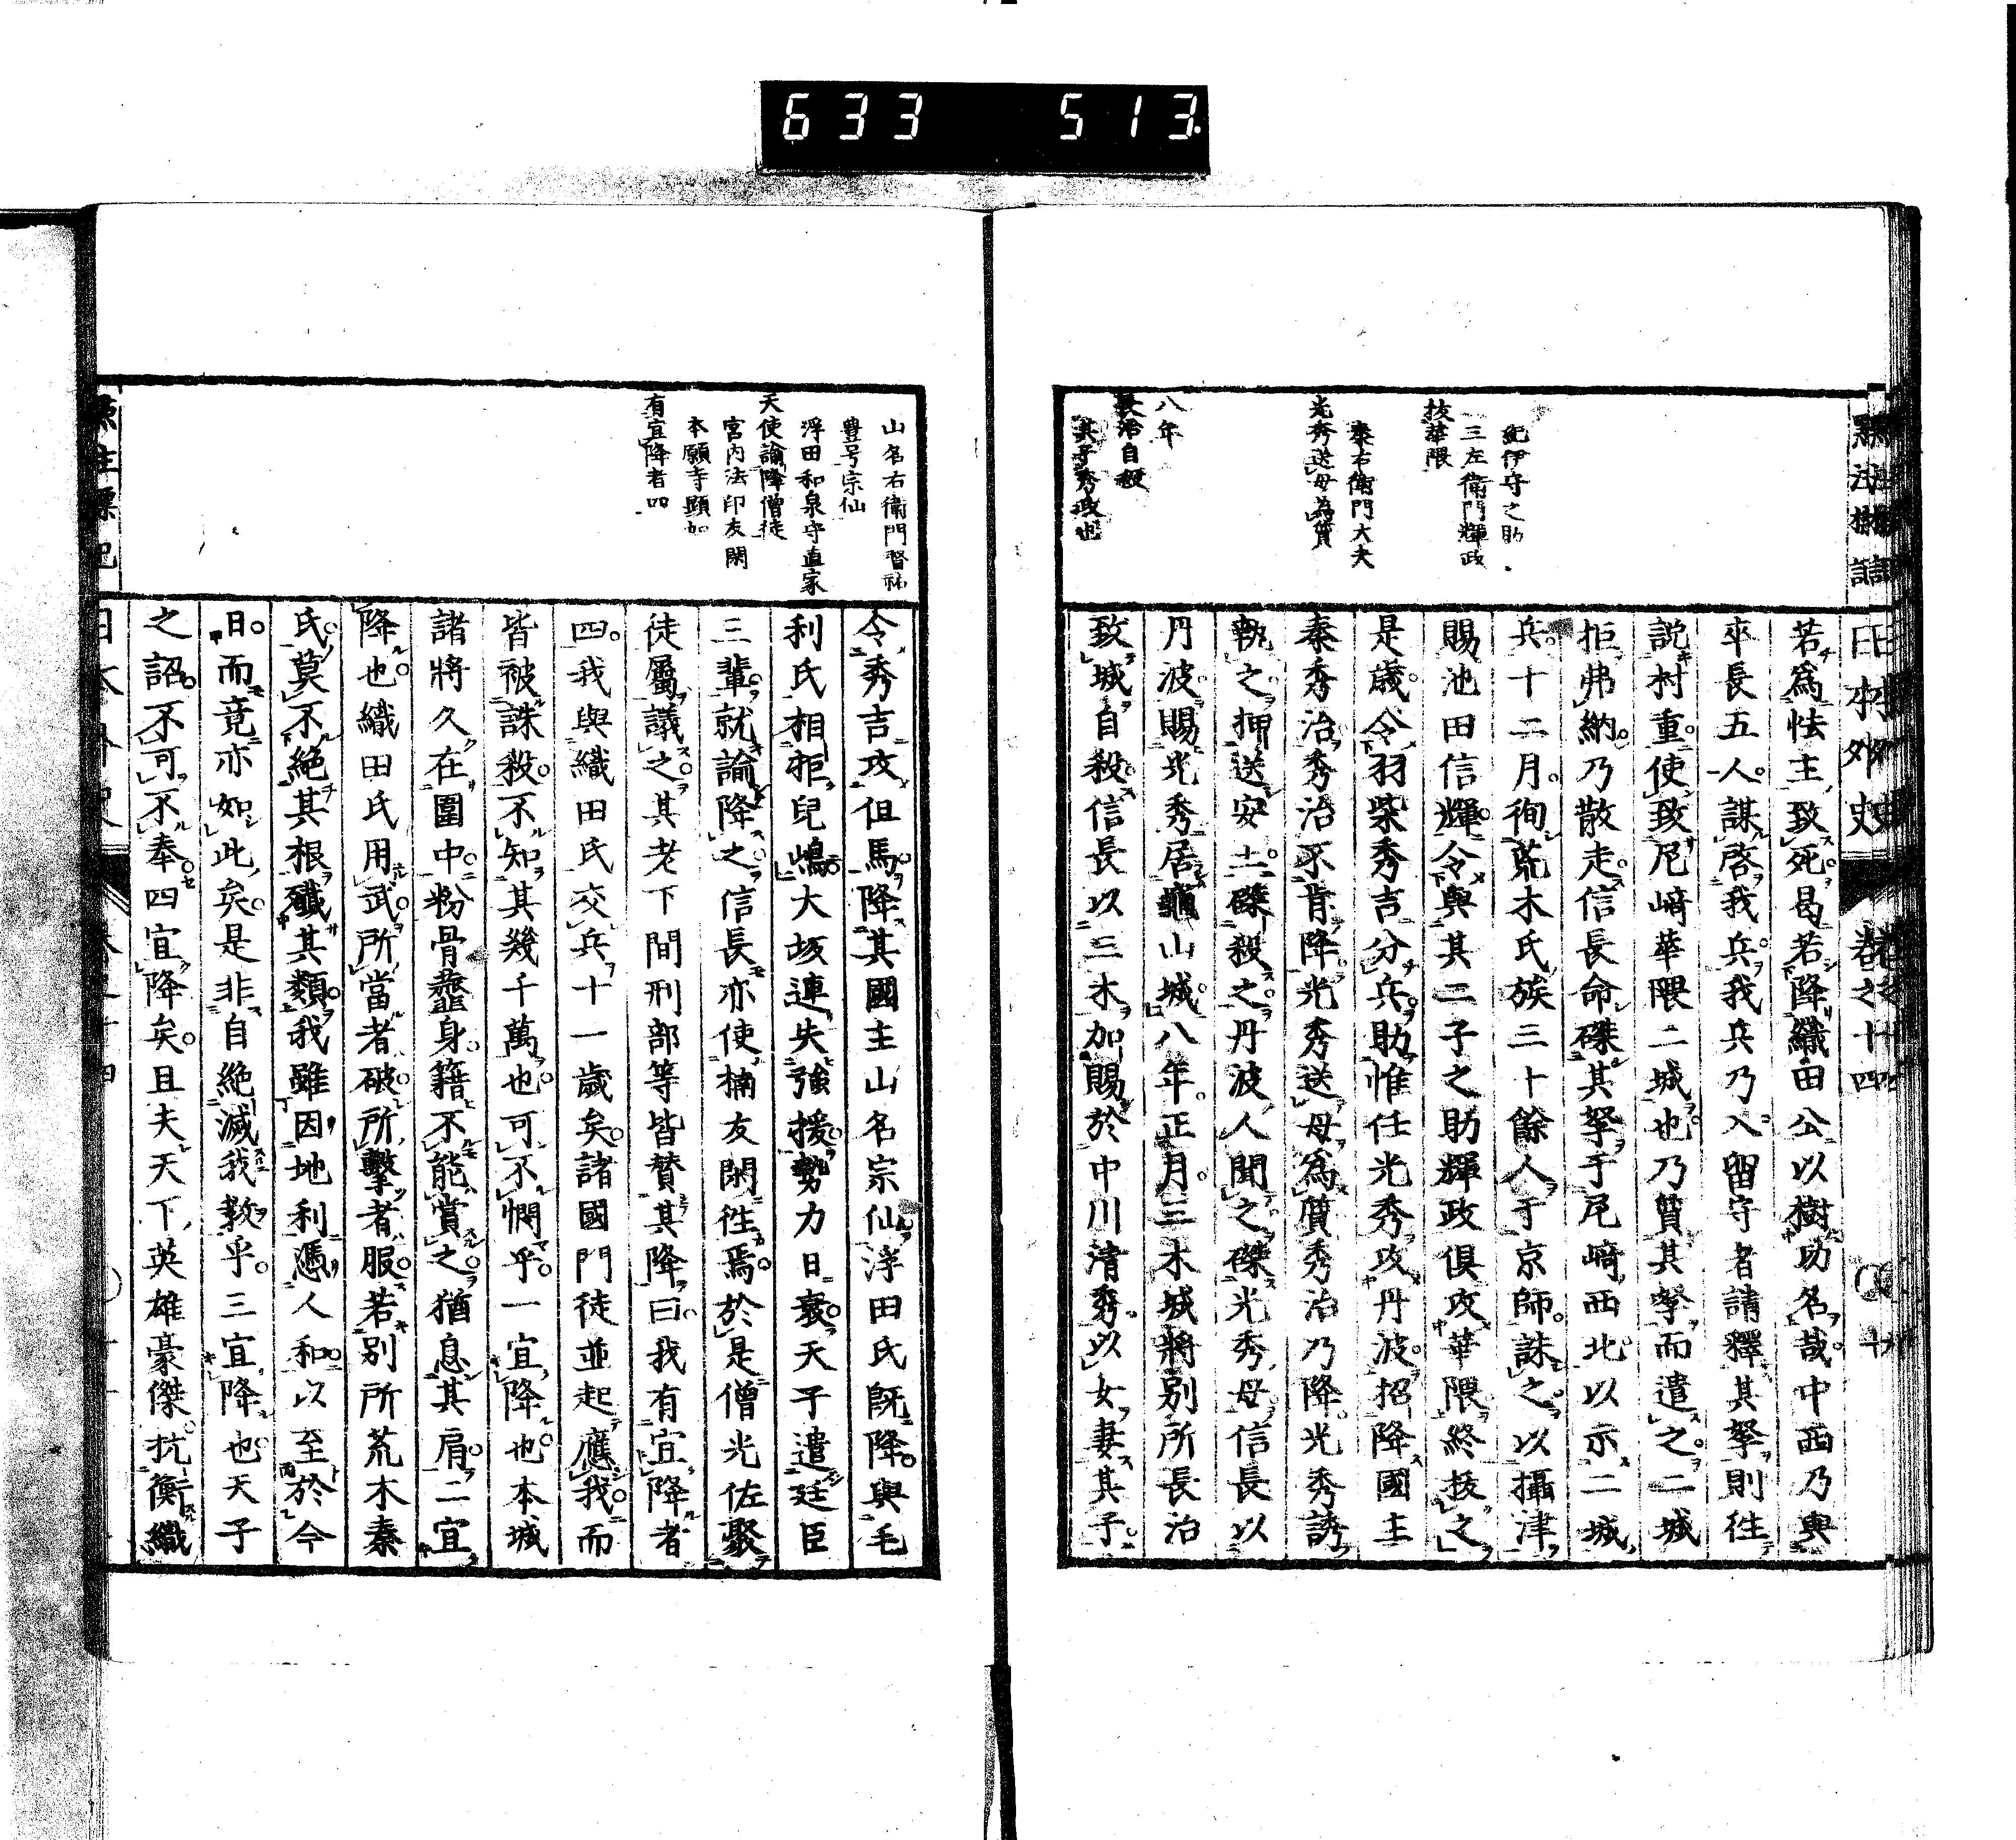 633 513
日本外史 卷之十四
紀伊守之助
三左衛門輝政
抜華隈
秦右衛門大夫
光秀送母為質
八年
長治自殺
其子秀政也
若爲怯主致死曷若降織田公以樹功名哉中西乃與
卒長五人謀啓我兵我兵乃入留守者請釋其孥則徃
説村重使致尼﨑華隈二城也乃質其孥而遣之二城
拒弗納乃散走信長命磔其孥于尼﨑西北以示二城
兵十二月徇荒木氏族三十餘人于京師誅之以攝津
賜池田信輝令與其二子之助輝政倶攻華隈終抜之
是歳令羽柴秀吉分兵助惟任光秀攻丹波招降國主
秦秀治秀治不肯降光秀送母爲質秀治乃降光秀誘
執之押送安土磔殺之丹波人聞之磔光秀母信長以
丹波賜光秀居龜山城八年正月三木城將別所長治
致城自殺信長以三木加賜於中川清秀以女妻其子
山名右衛門督祐
豊号宗仙
浮田和泉守直家
天使諭降僧徒
宮内法印友閑
本願寺顕如
有宜降者四
令秀吉攻但馬降其國主山名宗仙浮田氏既降與毛
利氏相拒兒嶋大坂連失強援勢力日衰天子遣廷臣
三輩就諭降之信長亦使楠友閑徃焉於是僧光佐聚
徒屬議之其老下間刑部等皆賛其降曰我有宜降者
四我與織田氏交兵十一歳矣諸國門徒並起應我而
皆被誅殺不知其幾千萬也可不憫乎一宜降也本城
諸將久在圍中粉骨虀身籍不能賞之猶息其肩二宜
降也織田氏用武所當者破所擊者服若別所荒木秦
氏莫不絶其根殲其類我雖因地利憑人和以至於今
日而竟亦如此矣是非自絶滅我教乎三宜降也天子
之詔不可不奉四宜降矣且夫天下英雄豪傑抗衡織